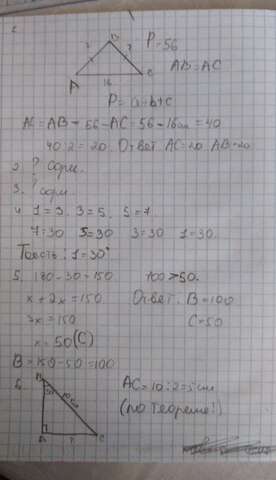 P = 56
AB = AC
A
C
16
P = a-b+c
AC = AB = 56 - AC = 56 - 16см = 40
40:2 = 20. Ответ. AC = 20. AB = 20
2. ?
3. ?
4. 1 = 3. 3 = 5. 5 = 7.
7 = 30 5 = 30 3 = 30 1 = 30.
Тоесть: 1 = 30°
5. 180 - 30 = 150. 100 > 50.
x + 2x = 150 Ответ. B = 100
3x = 150 C = 50
x = 50 (C)
B = 150 - 50 = 100
AC = 10:2 = 5см
(по теореме!)